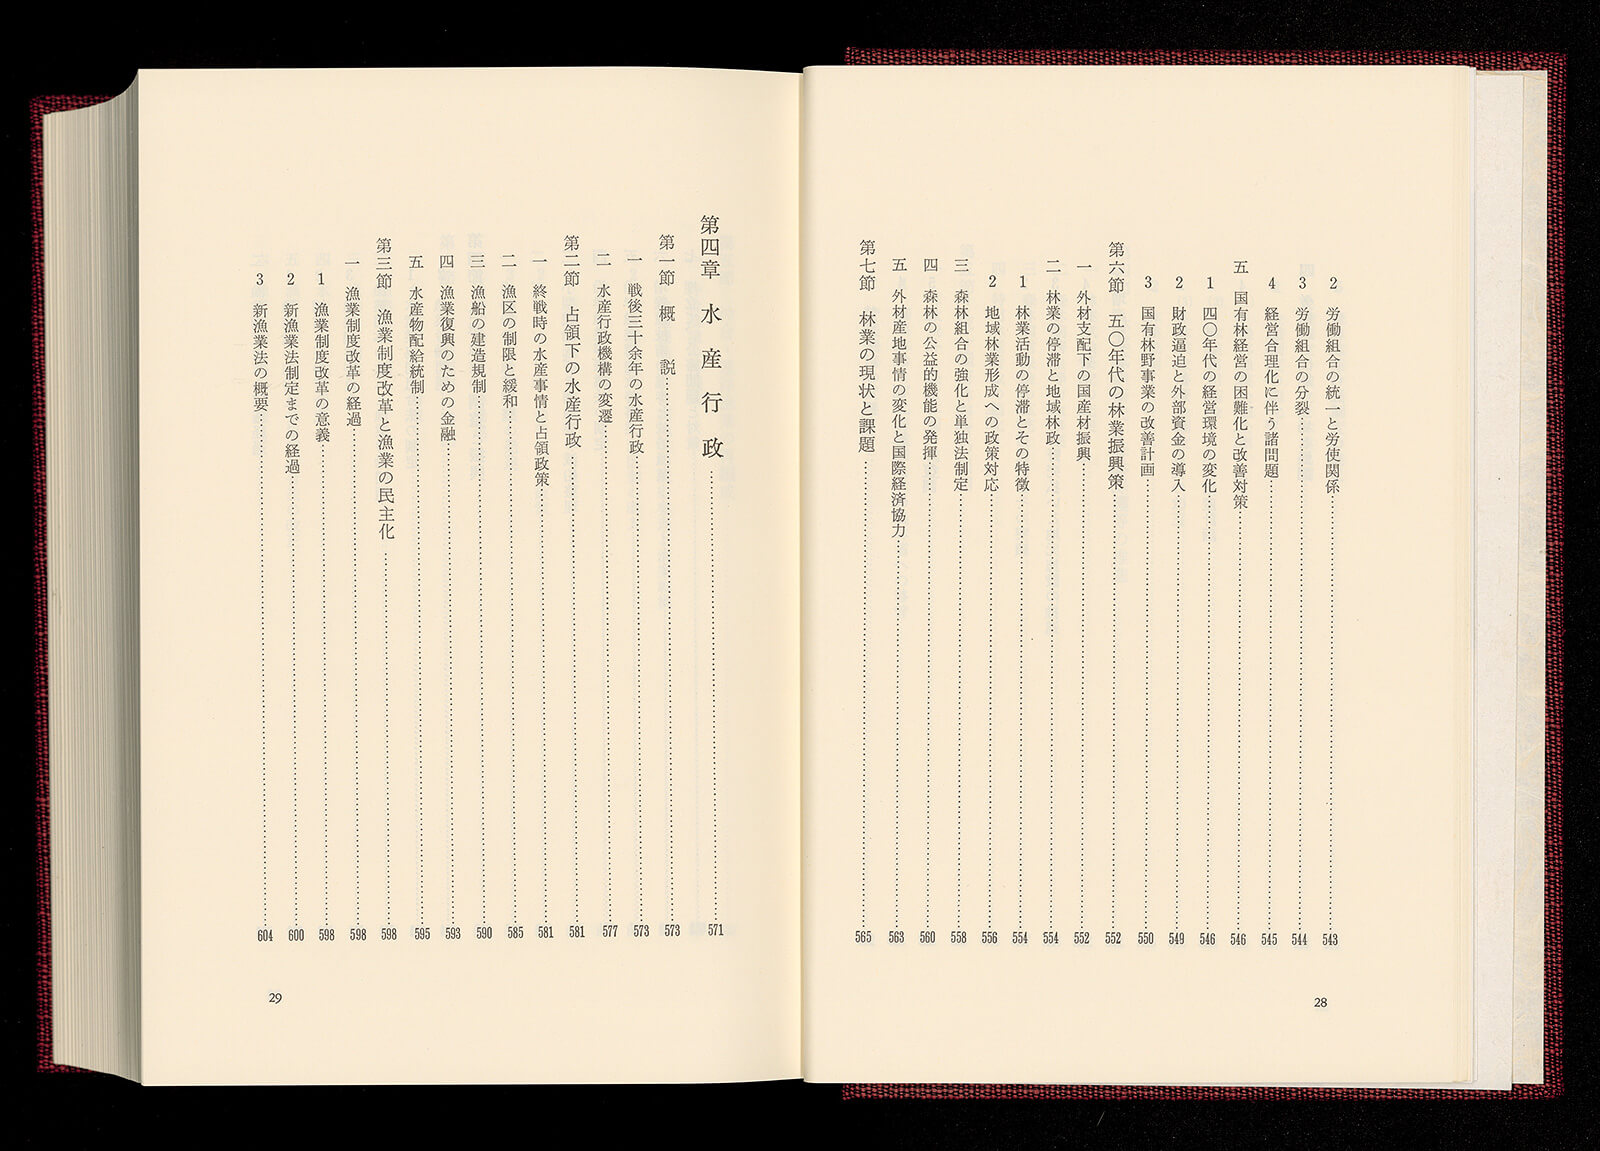 2 労働組合の統一と労使関係……543
3 労働組合の分裂……544
4 経営合理化に伴う諸問題……545
五 国有林経営の困難化と改善対策……546
1 四〇年代の経営環境の変化……546
2 財政逼迫と外部資金の導入……549
3 国有林野事業の改善計画……550
第六節 五〇年代の林業振興策……552
一 外材支配下の国産材振興……552
二 林業の停滞と地域林政……554
1 林業活動の停滞とその特徴……554
2 地域林業形成への政策対応……556
三 森林組合の強化と単独法制定……558
四 森林の公益的機能の発揮……560
五 外材産地事情の変化と国際経済協力……563
第七節 林業の現状と課題……565
28
第四章 水産行政……571
第一節 概説……573
一 戦後三十余年の水産行政……573
二 水産行政機構の変遷……577
第二節 占領下の水産行政……581
一 終戦時の水産事情と占領政策……581
二 漁区の制限と緩和……585
三 漁船の建造規制……590
四 漁業復興のための金融……593
五 水産物配給統制……595
第三節 漁業制度改革と漁業の民主化……598
一 漁業制度改革の経過……598
1 漁業制度改革の意義……598
2 新漁業法制定までの経過……600
3 新漁業法の概要……604
29